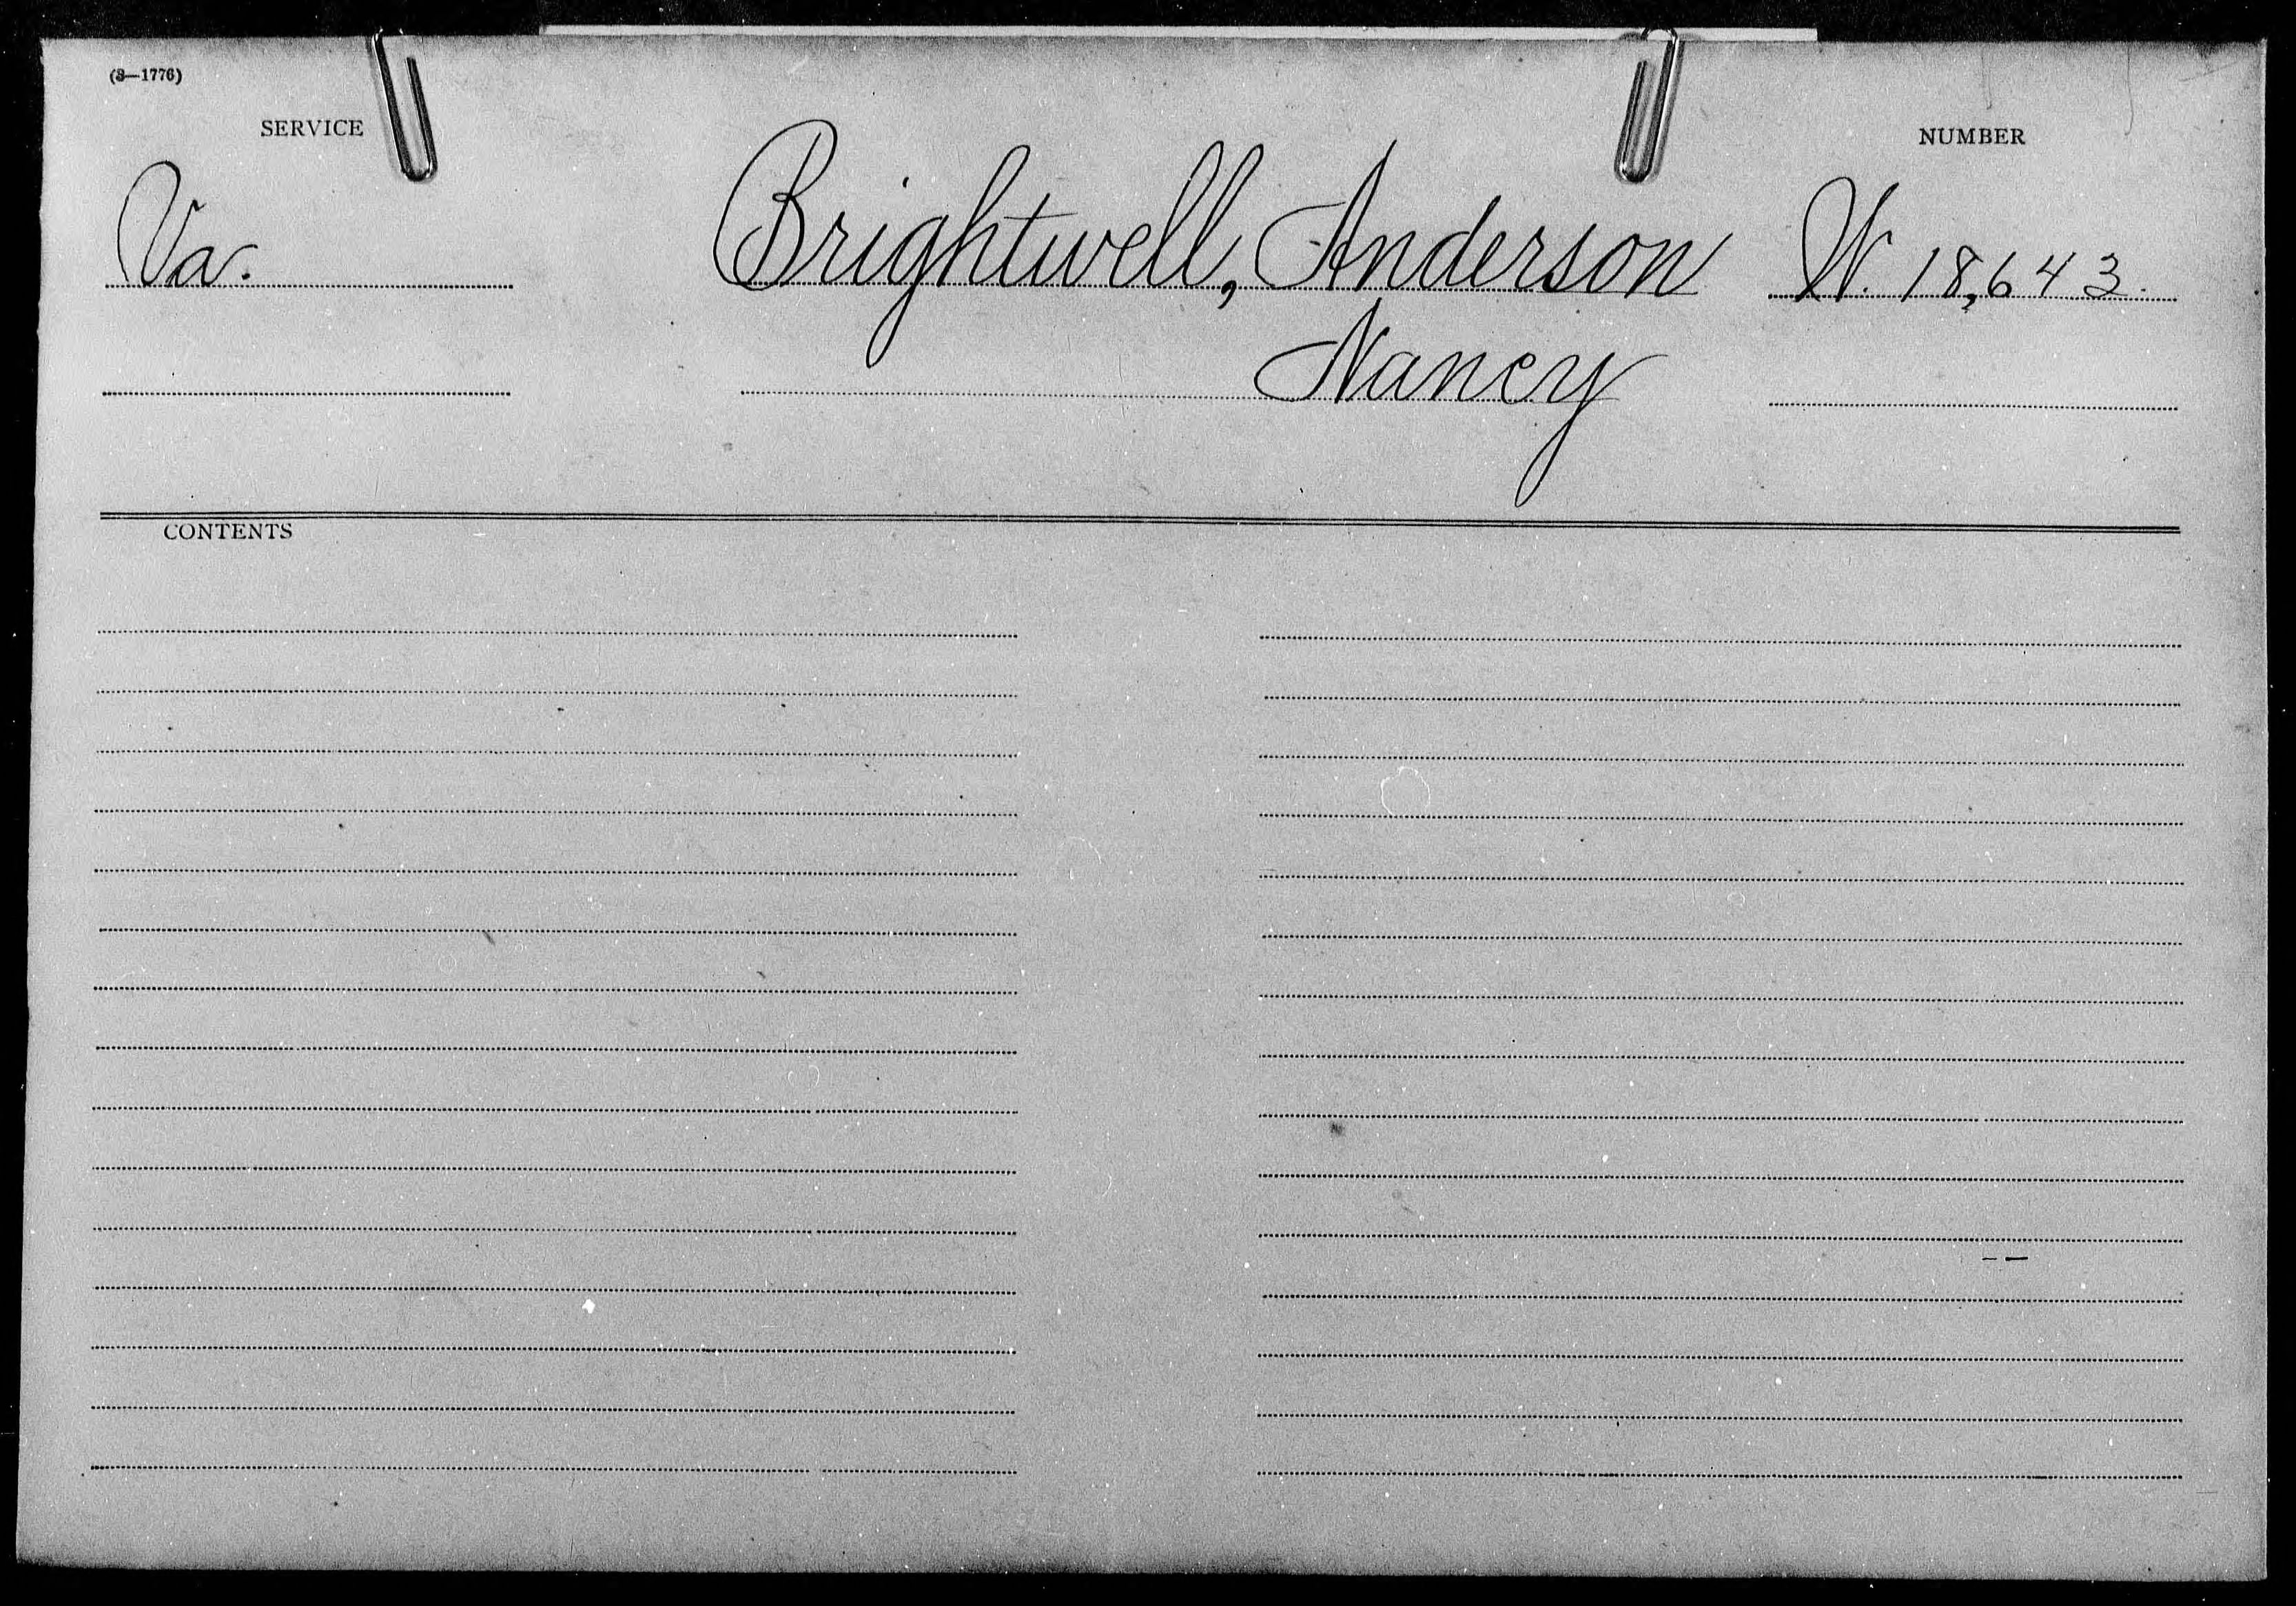 (3—1776)
SERVICE
NUMBER
Va. Brightwell, Anderson W. 18,643.
Nancy
CONTENTS